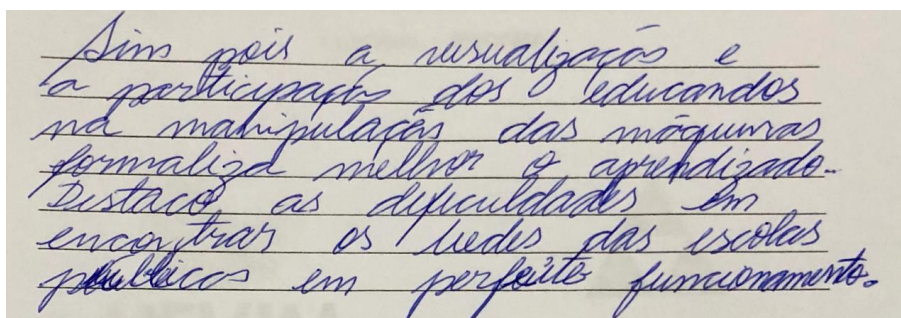 Sim pois a visualização e
a participação dos educandos
na manipulação das máquinas
formaliza melhor o aprendizado.
Destaco as dificuldades em
encontrar os leds das escolas
públicas em perfeito funcionamento.